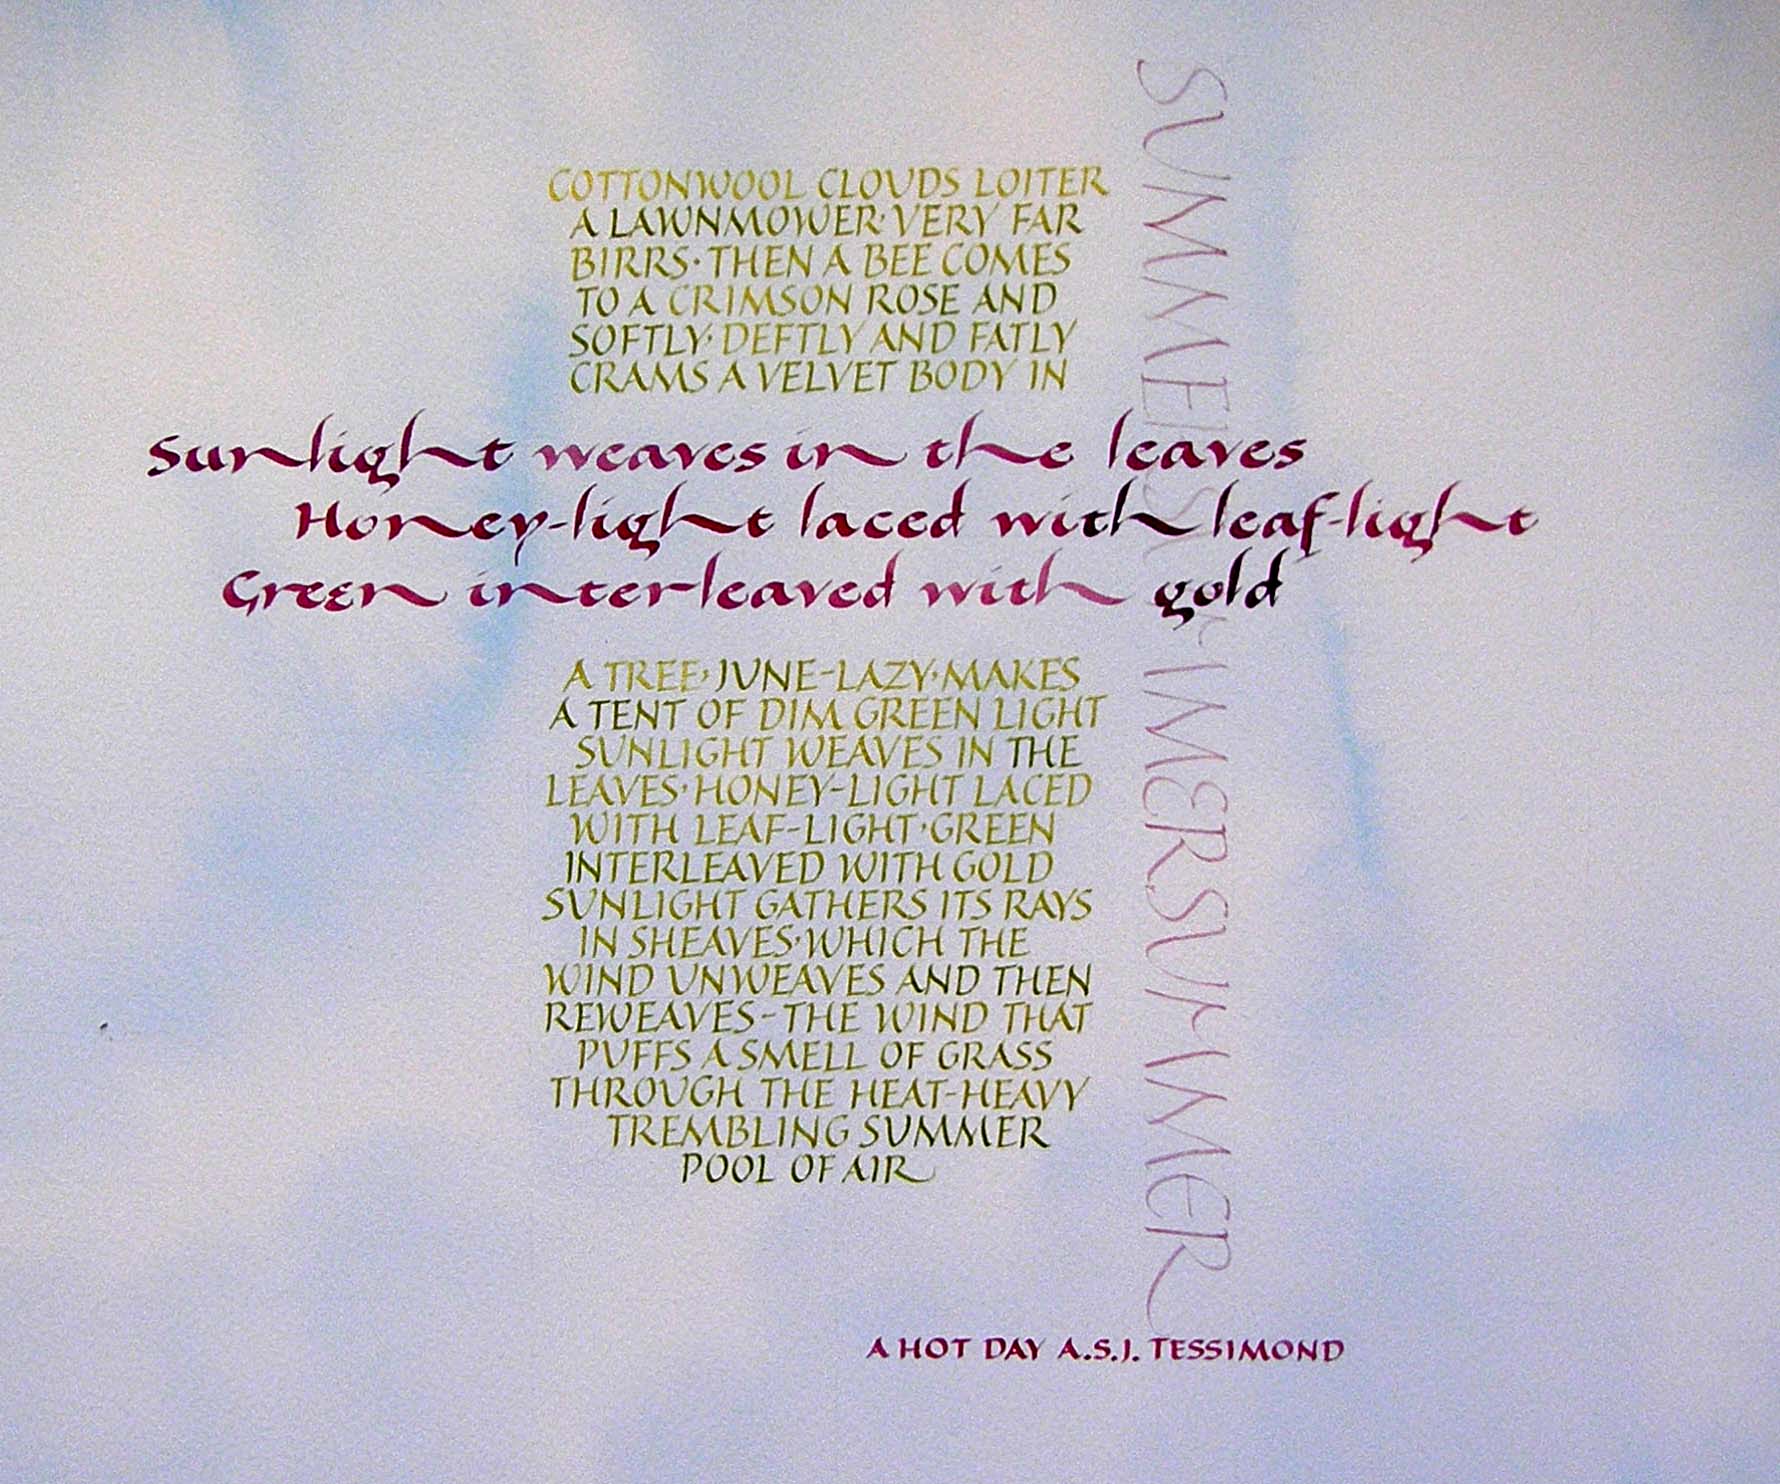 COTTONWOOL CLOUDS LOITER
A LAWNMOWER· VERY FAR
BIRRS· THEN A BEE COMES
TO A CRIMSON ROSE AND
SOFTLY· DEFTLY AND FATLY
CRAMS A VELVET BODY IN
Sunlight weaves in the leaves
Honey-light laced with leaf-light
Green interleaved with gold
A TREE· JUNE-LAZY· MAKES
A TENT OF DIM GREEN LIGHT
SUNLIGHT WEAVES IN THE
LEAVES· HONEY-LIGHT LACED
WITH LEAF-LIGHT· GREEN
INTERLEAVED WITH GOLD
SUNLIGHT GATHERS ITS RAYS
IN SHEAVES· WHICH THE
WIND UNWEAVES AND THEN
REWEAVES-THE WIND THAT
PUFFS A SMELL OF GRASS
THROUGH THE HEAT-HEAVY
TREMBLING SUMMER
POOL OF AIR
SUMMERSUMMERSUMMER
A HOT DAY A.S.J. TESSIMOND